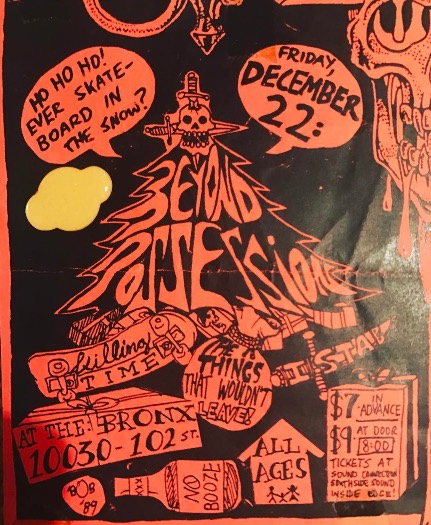 HO HO HO!
EVER SKATE-
BOARD IN
THE SNOW?
FRIDAY,
DECEMBER
22:
BEYOND
POSSESSION
killing
TIME
THE
THINGS
THAT WOULDN'T
LEAVE!
AT THE BRONX
10030-102 ST.
$7 IN
ADVANCE
$9 AT DOOR
8:00
TICKETS AT
SOUND CONNECTION
SOUTHSIDE SOUND
INSIDE EDGE!
ALL
AGES
NO
BOOZE
BOB
'89